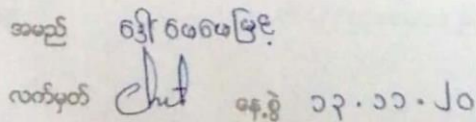 အမည် ဒေါ်ဖေဖေမြင့်
လက်မှတ် နေ့စွဲ ၁၃.၁၁.၂၀